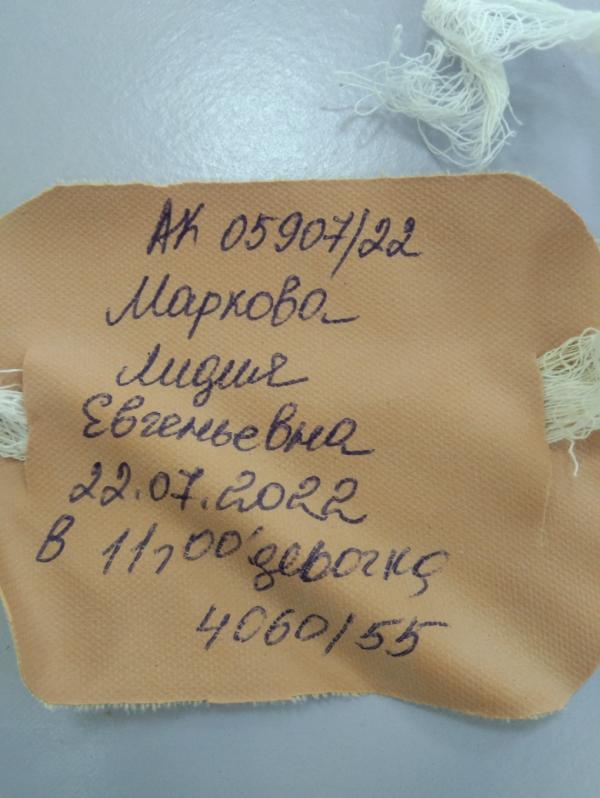 АК 05907/22
Маркова
Лидия
Евгеньевна
22.07.2022
В 11,00 девочка
4060/55